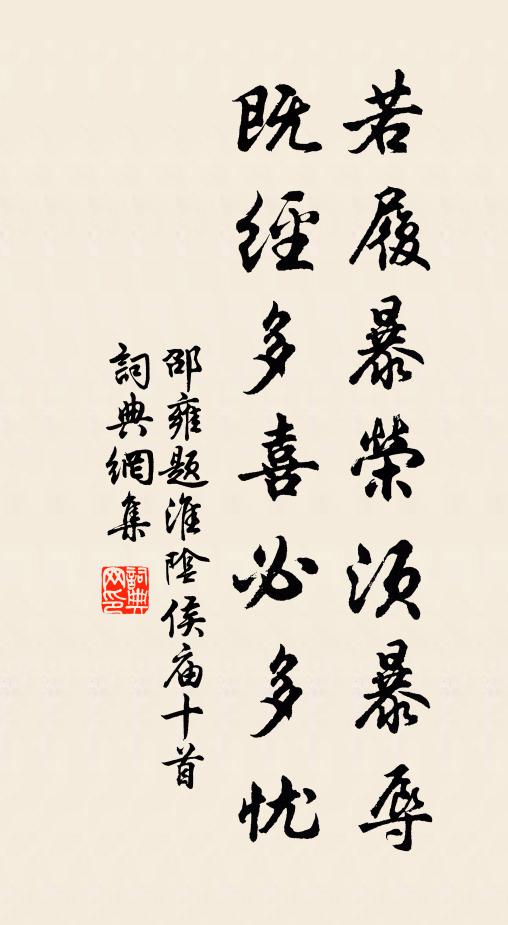 若履暴榮须暴辱
既經多喜必多忧
邵雍題淮陰侯庙十首
詞典網集
詞典网印